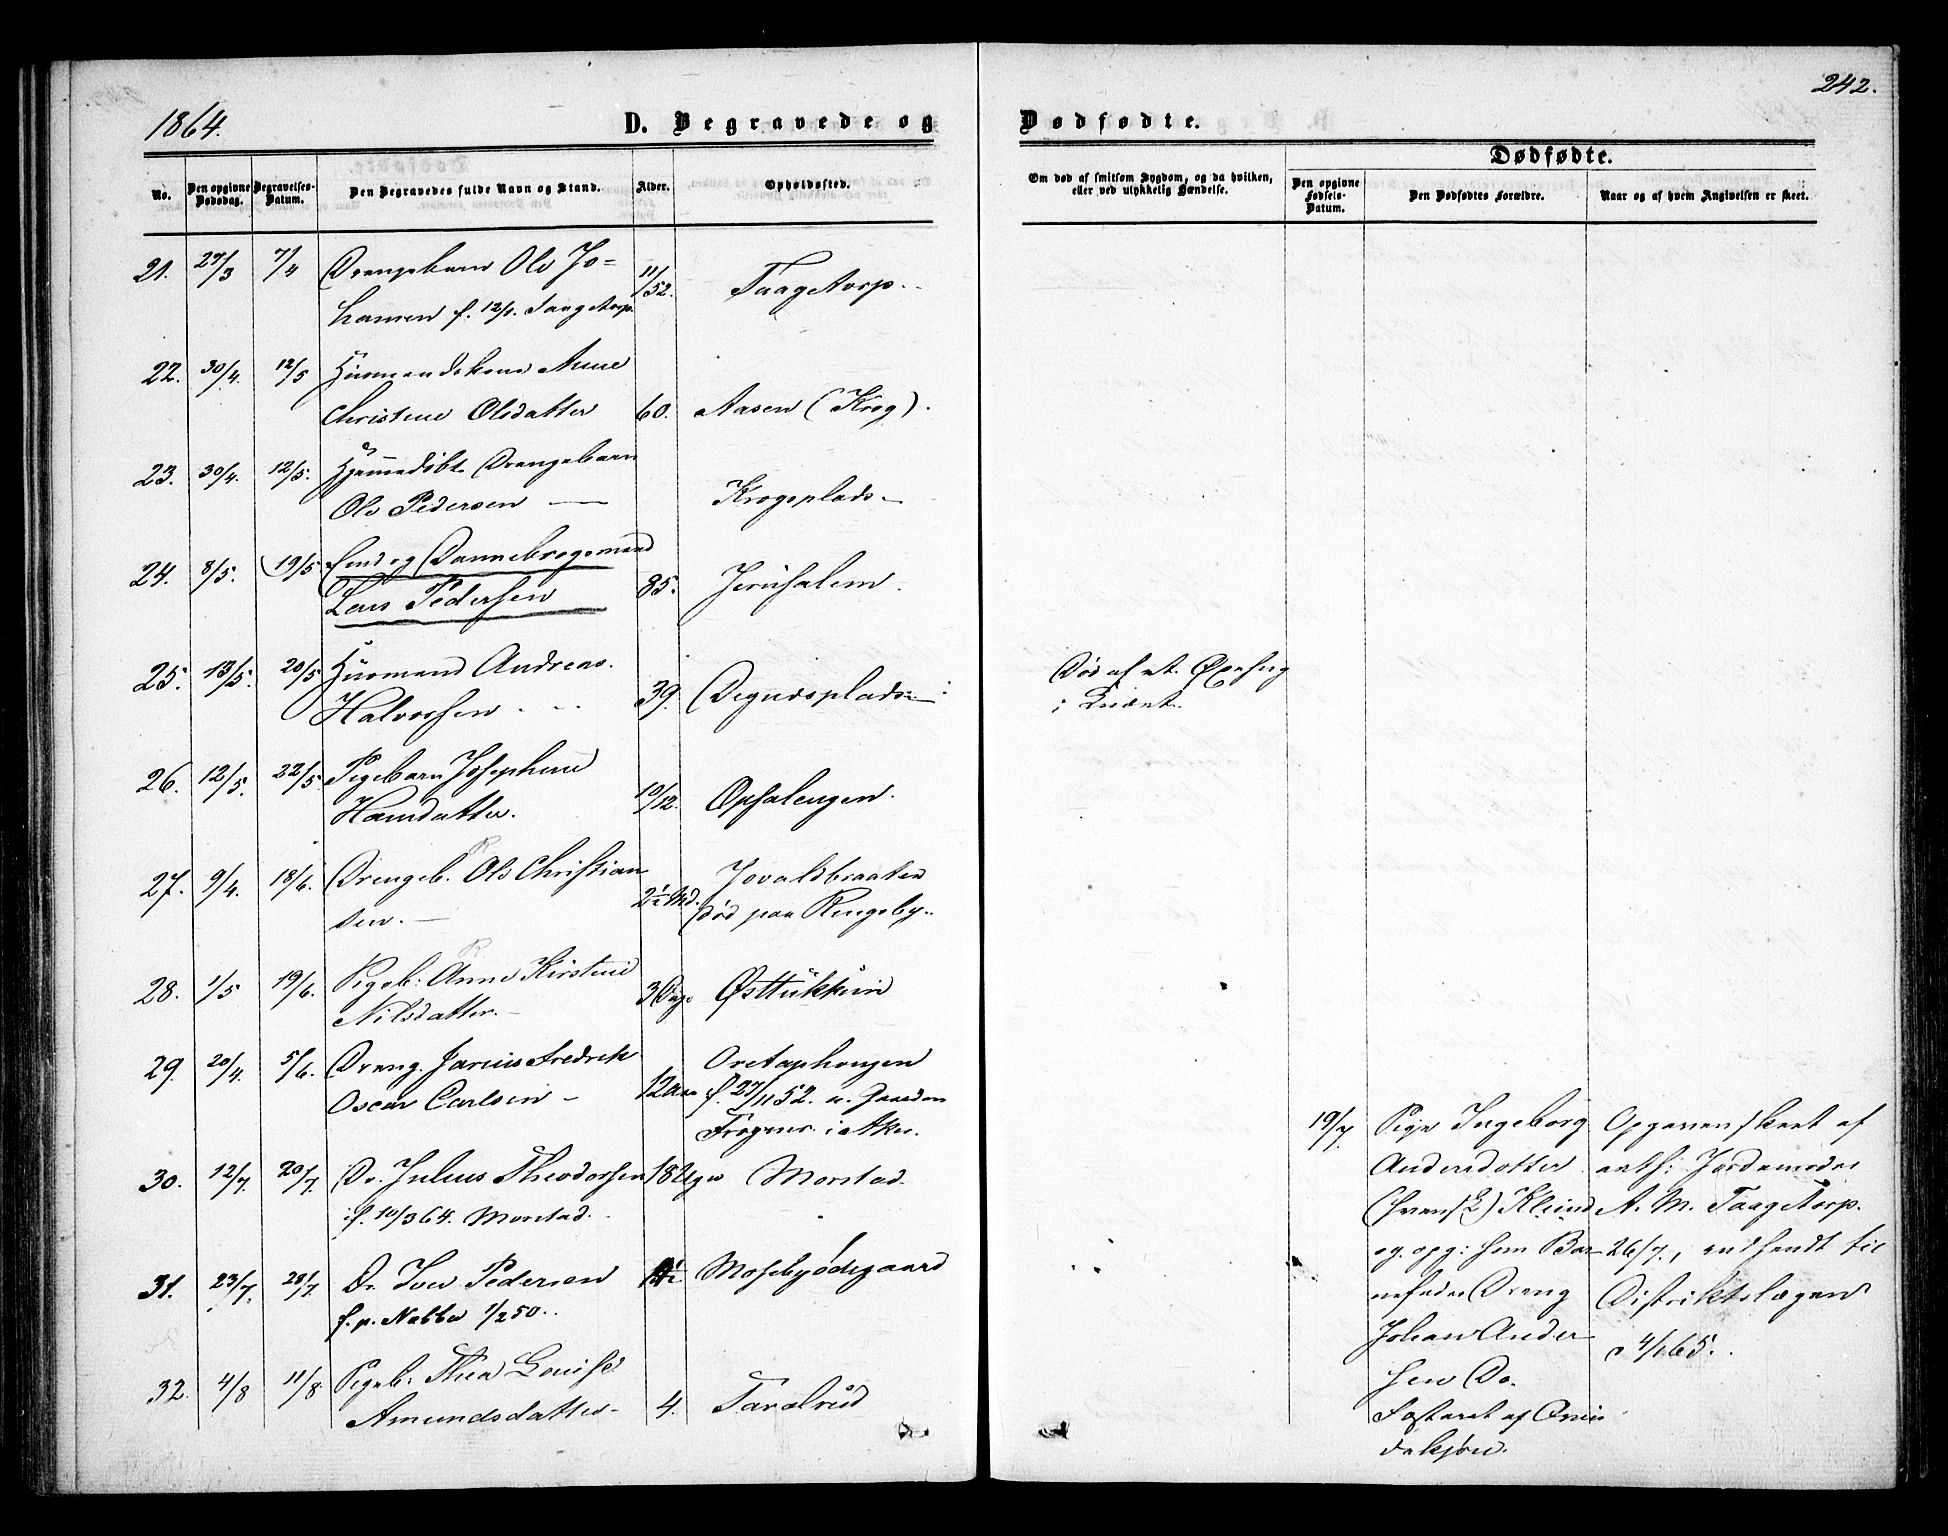 242.
1864.
D. Begravede og Dødfødte.
Dødfødte.
No.
Den opgivne Dødsdag.
Begravelses-Datum.
Den Begravedes fulde Navn og Stand.
Alder.
Opholdssted.
Om død af smitsom Sygdom, og da hvilken, eller ved ulykkelig Hændelse.
Den opgivne Fødsels-Datum.
Den Dødfødtes Forældre.
Naar og af hvem Angivelsen er skeet.
21. 27/3 7/4 Drengebarn Ole Jo=
hansen f. 12/1. Taagetorp. 11/52. Taagetorp.
22. 30/4. 12/5 Husmandskone Anne
Christine Olsdatter 60. Aasen (Krog).
23. 30/4. 12/5. Hjemmedøbt Drengebarn
Ole Pedersen — Krogsplads
24. 8/5. 19/5. Dannebrogsmand
Lars Pedersen 85. Jerusalem.
25. 13/5. 20/5 Husmand Andreas
Halvorsen 39. Degnesplads
Død af et Øxehug
i Knæet.
26. 12/5. 22/5. Pigebarn Josephine
Hansdatter. 10/12. Opsalengen.
27. 9/4. 18/6. Drengeb. Ole Christian
sen. — 2½ Md. Jovaldbraaten
død paa Ringeby.
28. 1/5 19/6. Pigeb: Anne Kirstine
Nilsdatter. 3 Dage Østtukkuin
29. 20/4. 5/6. Dreng. Fredrik
Oscar Carlsen – 12 Aar
f. 27/11 52. Gaarden
Frogner i Aker.
30. 12/7. 20/7. Dr. Julius Theodorsen 18 Uger Morstad.
f. 10/3 64. Morstad.
31. 23/7. 28/7. Dr. Iver Pedersen Mosebyødegaard
f. p. Nabber 1/2 50.
32. 4/8 11/8 Pigeb: Thea Louise
Amundsdatter 4. Taralrud
19/7 Pige Ingeborg
Andersdatter
(svensk)
og opg: som Bar
nefader Dreng
Johan Ander
sen Do.
Fosteret af Qvin
dekjøn.
Opgaven skeet af
exth: Jordemoder
A. M. Taagetorp.
26/7., indsendt til
Distriktslægen
4/1 65.